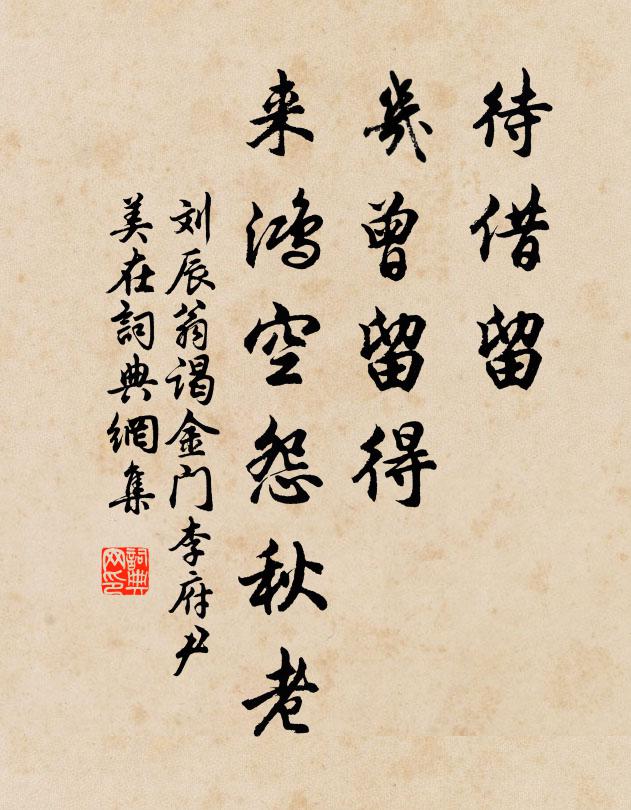 待借留
幾曾留得
来鸿空怨秋老
刘辰翁谒金门李府尹
美在詞典網集
詞典网印